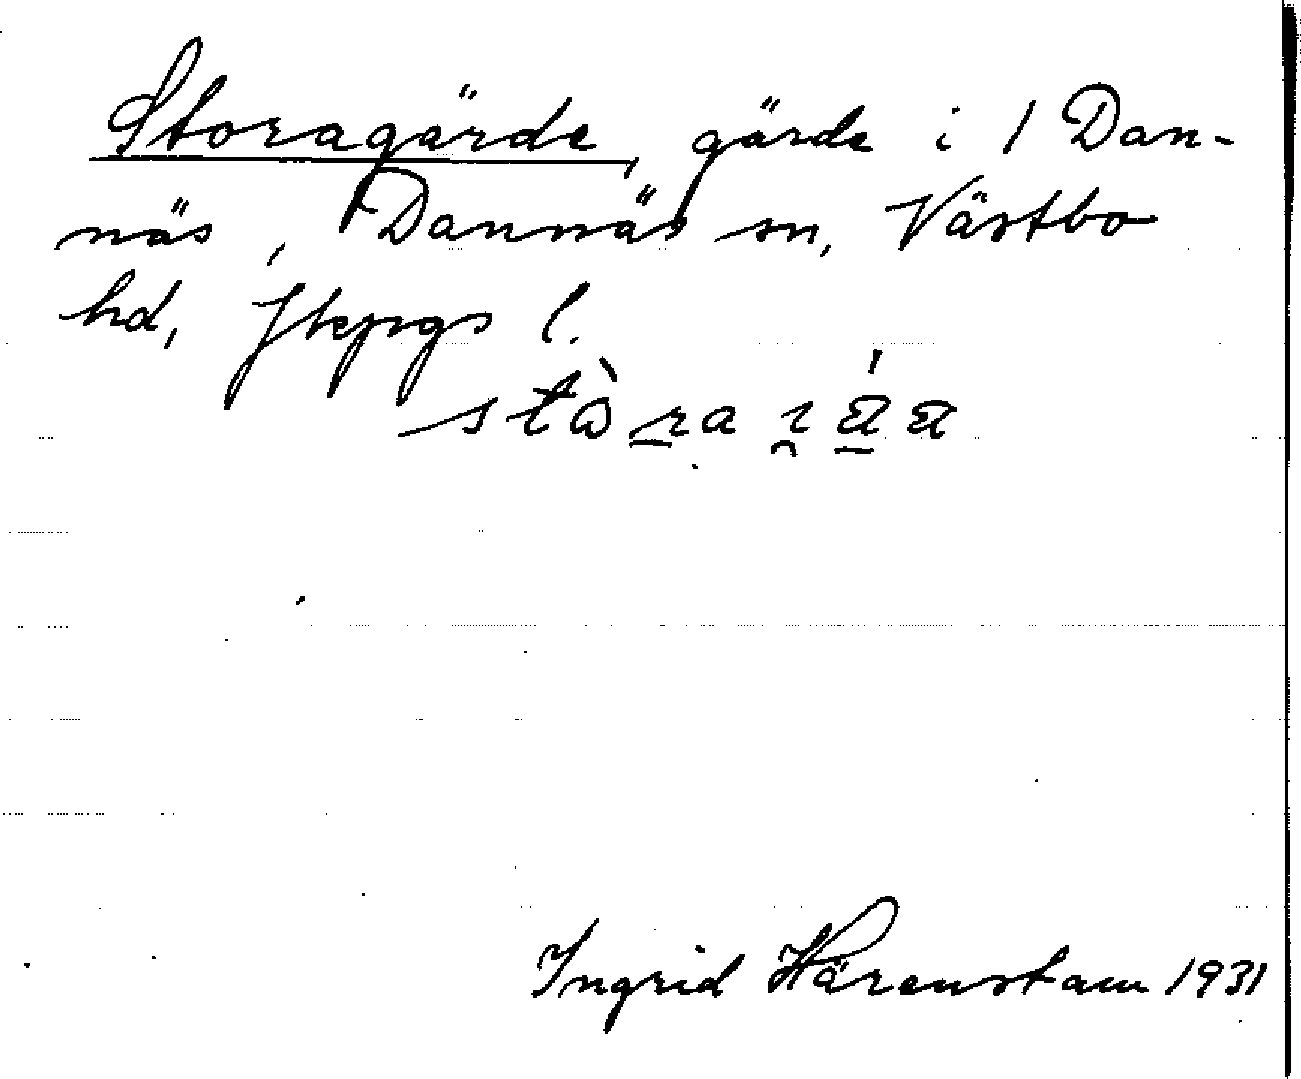 Storagärde, gärde i 1 Dan-
näs, Dannäs sn, Västbo
hd, Jkpgs l.
Ingrid Härenstam 1931